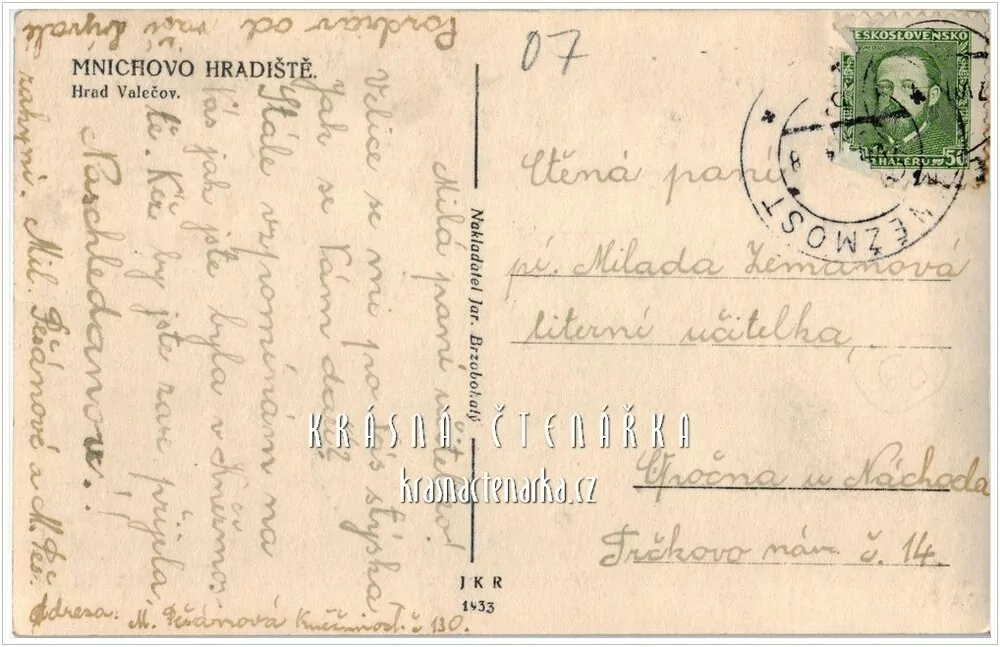 MNICHOVO HRADIŠTĚ.
Hrad Valečov.
07
ČESKOSLOVENSKO
50
HALÉŘŮ
ĚŽMOST
8
Milá paní učitelko!
Velice se mi po Vás stýská
Jak se Vám daří?
Stále vzpomínám na
Vás jak jste byla v
tě. Kéž by jste zase přijela,
Naschledanou.
Pozdrav od vaší bývalé
Mil. Pešánové a
Adresa: M. Pešánová Kněžmost. č 130.
Nakladatel Jar. Brzobohatý
J K R
1933
Ctěná paní
pí. Milada Zemanová
literní učitelka,
Opočna u Náchoda
Trčkovo nám. č. 14.
KRÁSNÁ ČTENÁŘKA
krasnactenarka.cz